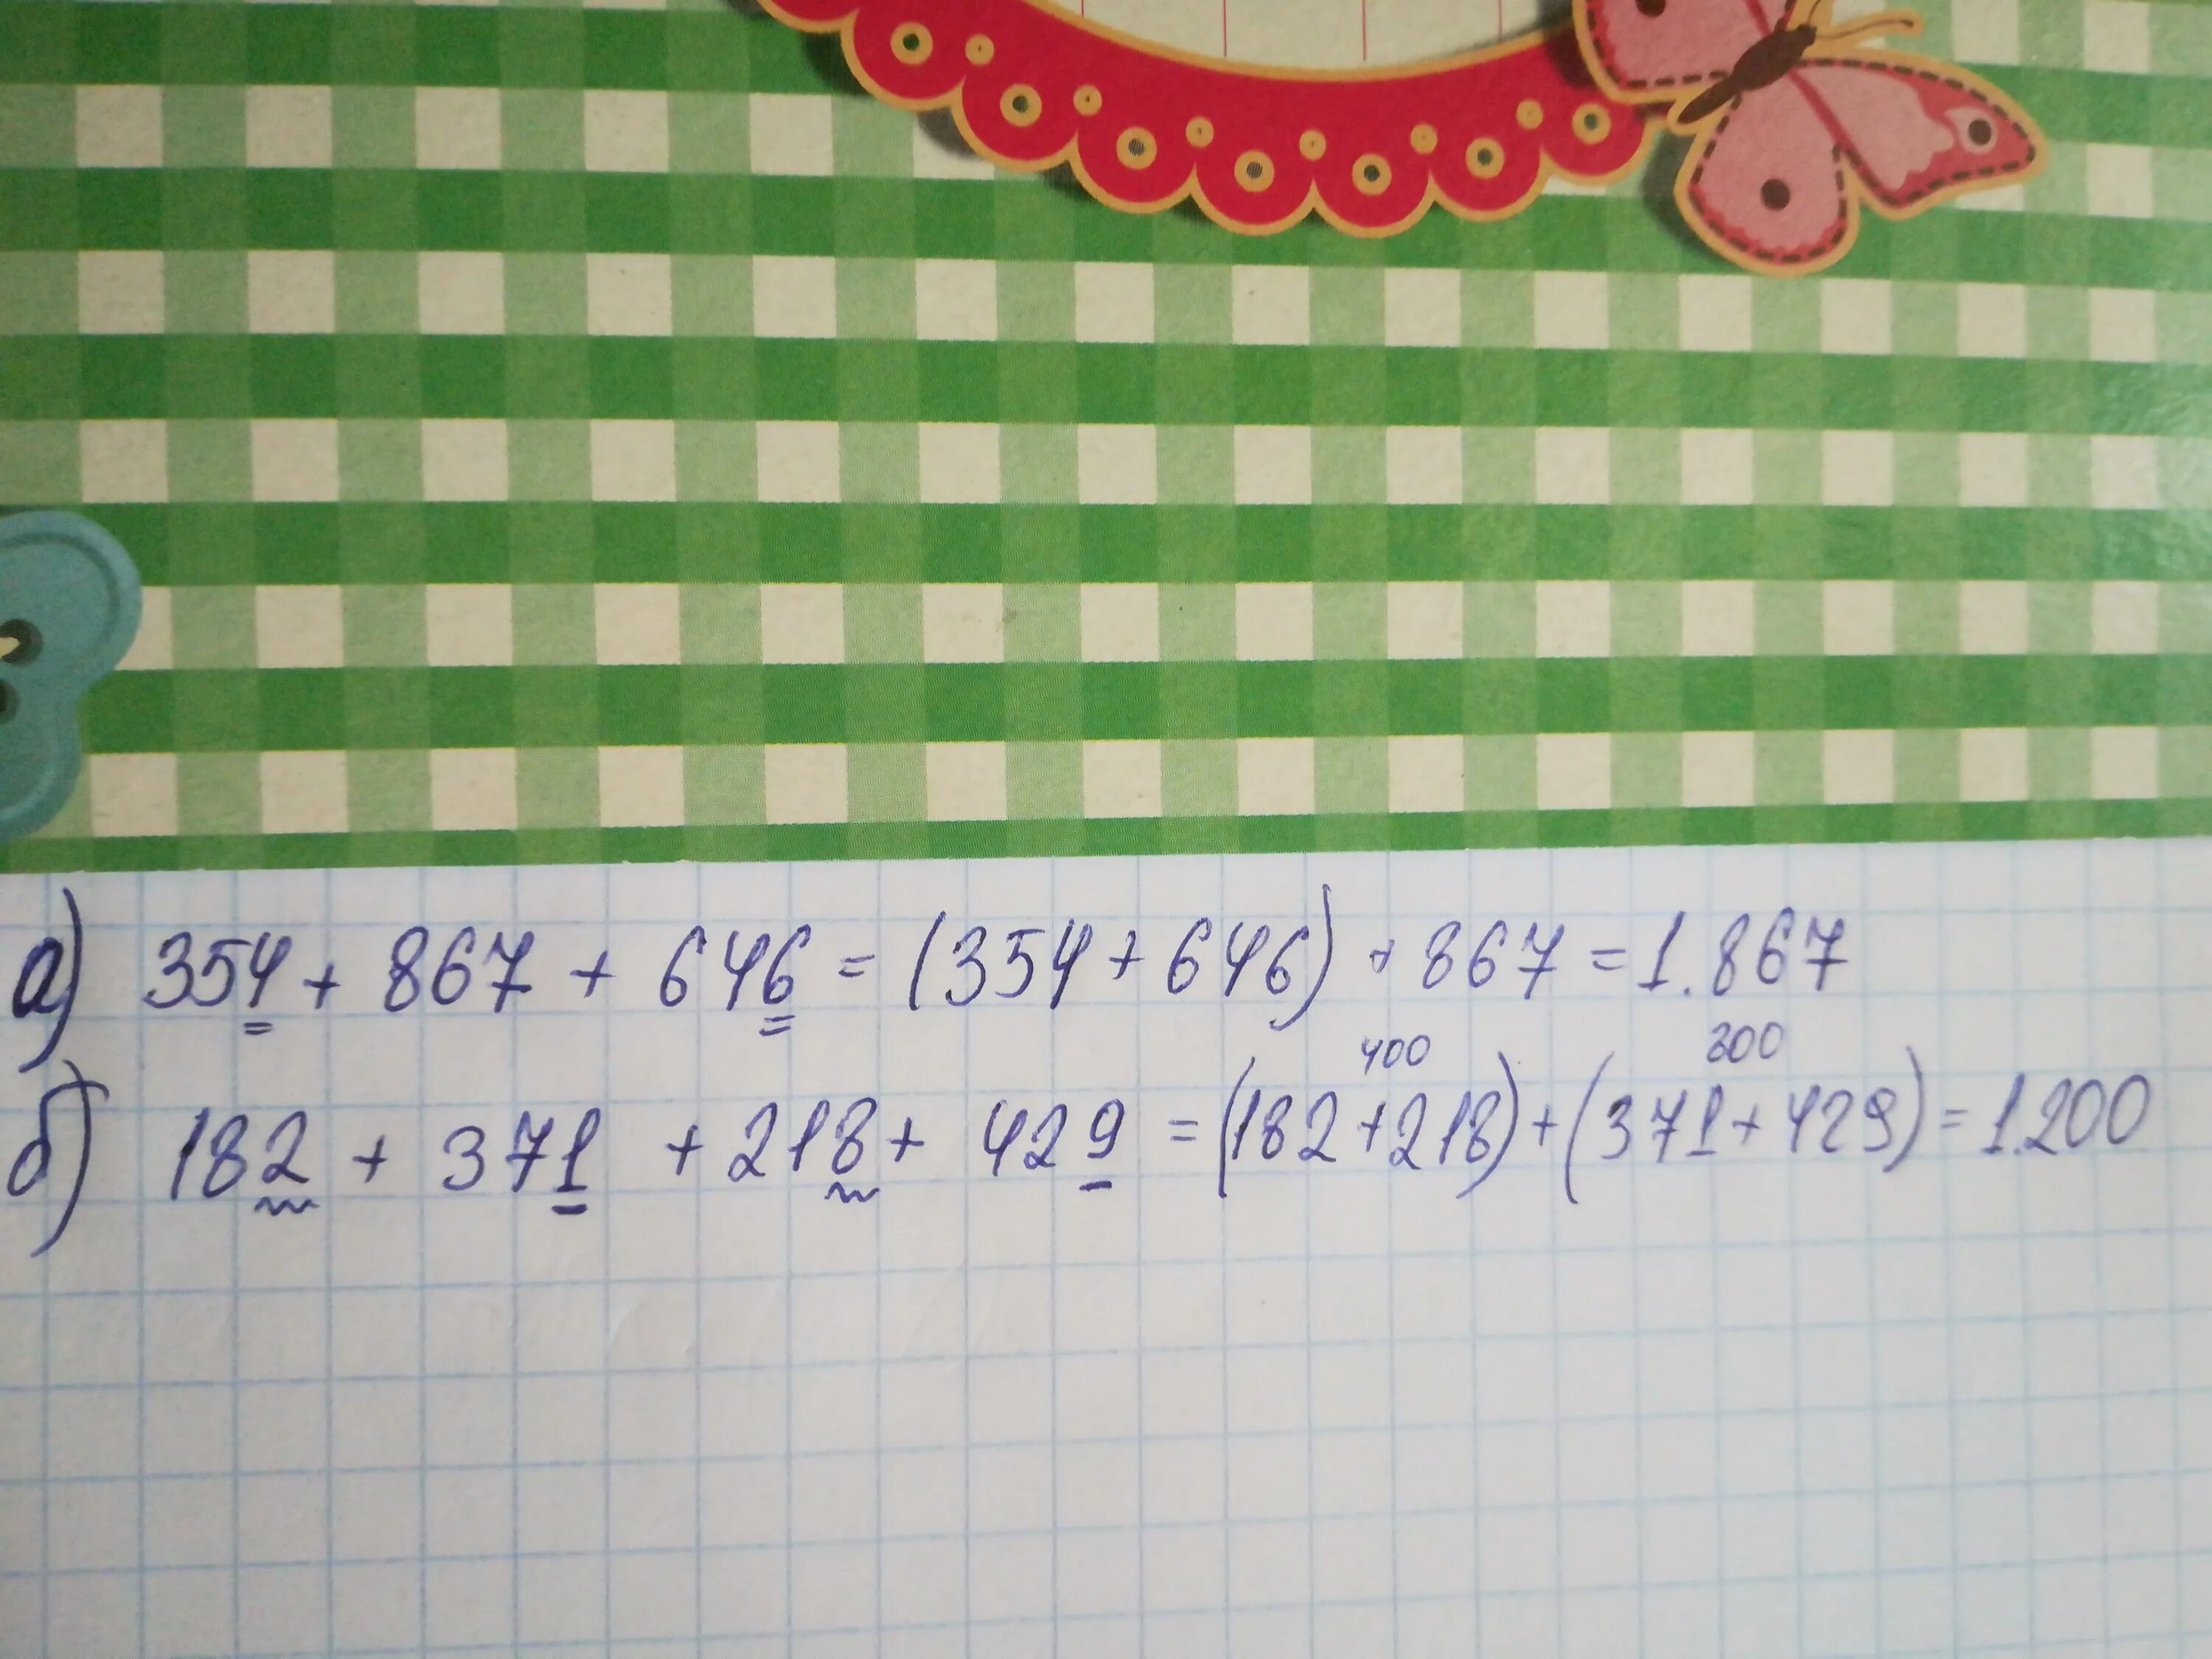 а) 354 + 867 + 646 = (354 + 646) + 867 = 1.867
400 300
б) 182 + 371 + 218 + 429 = (182 + 218) + (371 + 429) = 1.200